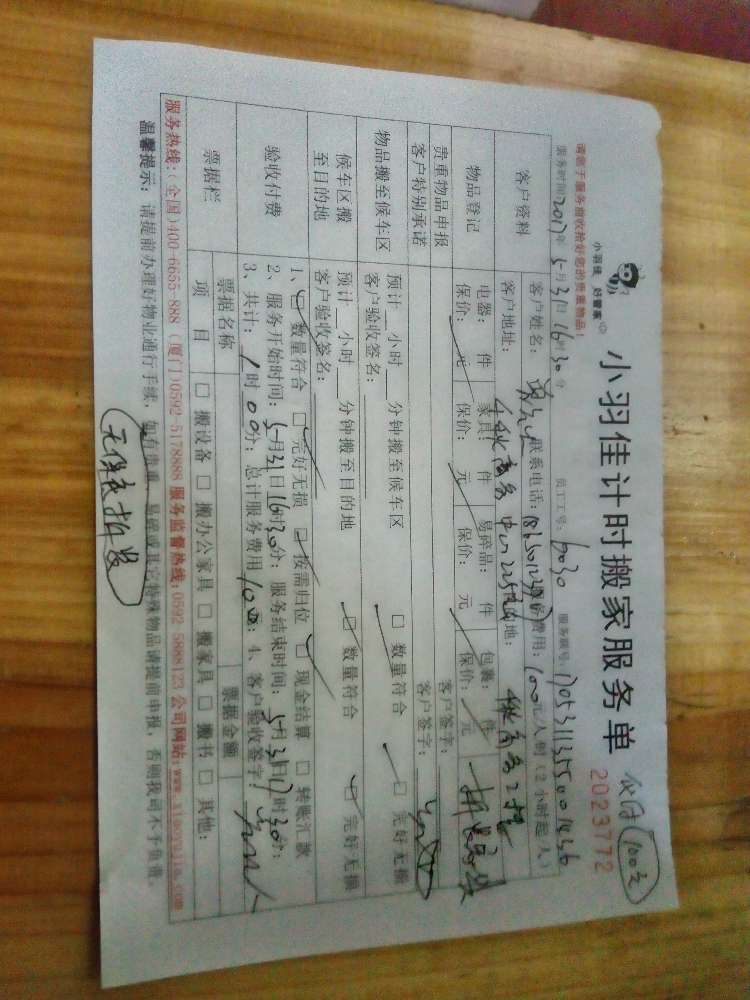 小羽佳计时搬家服务单
小羽佳 好管家
2023772
必付 100元
请您于服务前收拾好您的贵重物品！
服务时间2017年5月31日16时30分 员工工号：6030 服务票号：
客户资料 客户姓名： 联系电话： 费用：100元/人时（2小时起/人）
客户地址：
物品登记 电器： 件 家具： 件 易碎品： 件 包裹： 件
保价： 元 保价： 元 保价： 元 保价： 元
贵重物品申报 客户签字：
客户特别承诺 客户签字：
物品搬至候车区 预计__小时__分钟搬至候车区 □ 数量符合 □ 完好无损
客户验收签名：
候车区搬至目的地 预计__小时__分钟搬至目的地 □ 数量符合 □ 完好无损
客户验收签名：
验收付费 1、□ 数量符合 □ 完好无损 □ 按需归位 □ 现金结算 □ 转账汇款
2、服务开始时间：5月31日16时30分；服务结束时间：5月31日17时30分；
3、共计：1时00分；总计服务费用100元；4、客户验收签字：
票据栏 票据名称 票据金额
项 目 □ 搬设备 □ 搬办公家具 □ 搬家具 □ 搬书 □ 其他：
服务热线：(全国)400-6655-888 (厦门)0592-5178888 服务监督热线：0592-5688123 公司网站：www.xiaoyujia.com
温馨提示：请提前办理好物业通行手续，如有贵重、易碎或其它特殊物品请提前申报，否则我司不予负责。